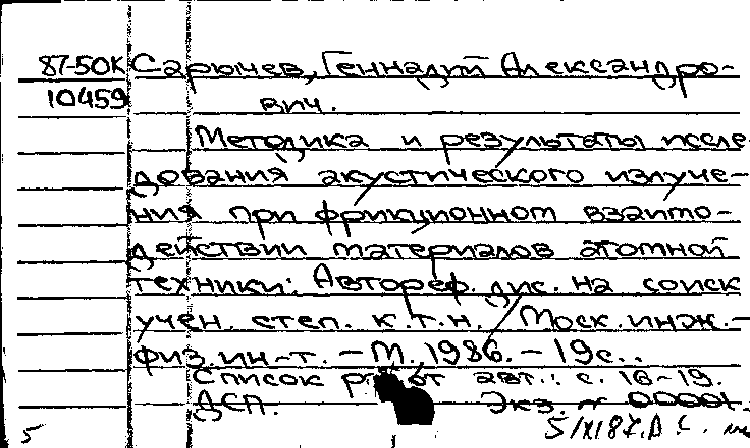 87-50К Сарычев, Геннадий Александро-
10459 вич.
Методика и результаты иссле
дования акустического излуче-
ния при фрикционном взаимо-
действии материалов атомной
техники: Автореф. дис. на соиск
учен. степ. к.т.н. / Моск. инж.-
физ. ин-т. - М. 1986. - 19с..
Список работ авт.: с. 18-19.
ДСП. Экз. № 00001.
5